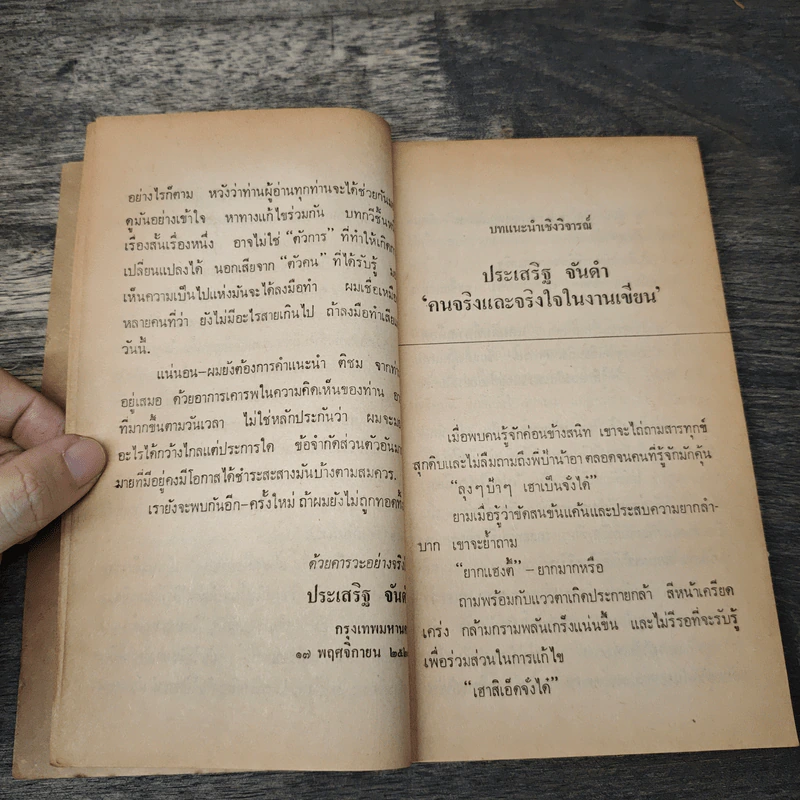 อย่างไรก็ตาม หวังว่าท่านผู้อ่านทุกท่านจะได้ช่วยกัน
ดูมันอย่างเข้าใจ หาทางแก้ไขร่วมกัน บทกวีชิ้น
เรื่องสั้นเรื่องหนึ่ง อาจไม่ใช่ “ตัวการ” ที่ทำให้เกิด
เปลี่ยนแปลงได้ นอกเสียจาก “ตัวคน” ที่ได้รับรู้
เห็นความเป็นไปแห่งมันจะได้ลงมือทำ ผมเชื่อ
หลายคนที่ว่า ยังไม่มีอะไรสายเกินไป ถ้าลงมือทำ
วันนี้.
แน่นอน–ผมยังต้องการคำแนะนำ ติชม จาก
อยู่เสมอ ด้วยอาการเคารพในความคิดเห็นของท่าน
ที่มากขึ้นตามวันเวลา ไม่ใช่หลักประกันว่า ผมจะ
อะไรได้กว้างไกลแต่ประการใด ข้อจำกัดส่วนตัวอัน
มายที่มีอยู่คงมีโอกาสได้ชำระสะสางมันบ้างตามสมควร.
เรายังจะพบกันอีก–ครั้งใหม่ ถ้าผมยังไม่ถูกทอด
ด้วยคารวะอย่างจริง
ประเสริฐ จันดำ
กรุงเทพมหานคร
๑๗ พฤศจิกายน
บทแนะนำเชิงวิจารณ์
ประเสริฐ จันดำ
‘คนจริงและจริงใจในงานเขียน’
เมื่อพบคนรู้จักค่อนข้างสนิท เขาจะไถ่ถามสารทุกข์
สุกดิบและไม่ลืมถามถึงพี่ป้าน้าอา ตลอดจนคนที่รู้จักมักคุ้น
“ลุงๆ ป้าๆ เฮาเป็นจั่งได๋”
ยามเมื่อรู้ว่าขัดสนข้นแค้นและประสบความยากลำ-
บาก เขาจะย้ำถาม
“ยากแฮงตี้” – ยากมากหรือ
ถามพร้อมกับแววตาเกิดประกายกล้า สีหน้าเครียด
เคร่ง กล้ามกรามพลันเกร็งแน่นขึ้น และไม่รีรอที่จะรับรู้
เพื่อร่วมส่วนในการแก้ไข
“เฮาสิเฮ็ดจั่งได๋”